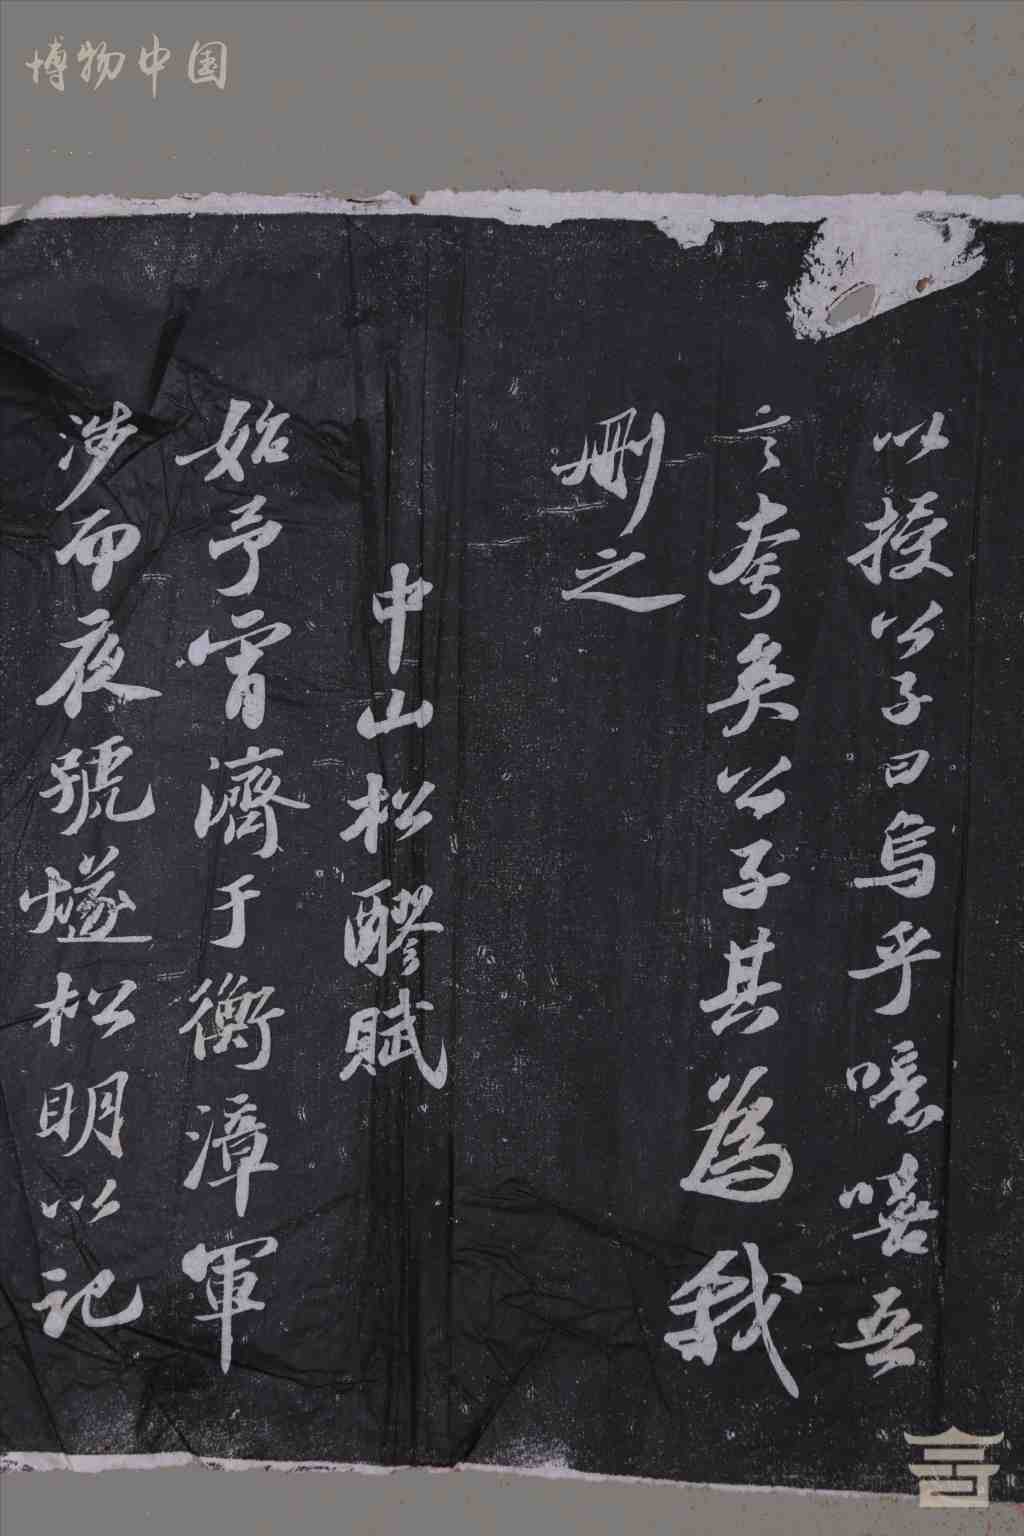 博物中国
以授公子曰烏乎噫嘻吾
言夸矣公子其為我
刪之
中山松醪賦
始予宵濟于衡漳軍
涉而夜號燧松明以記